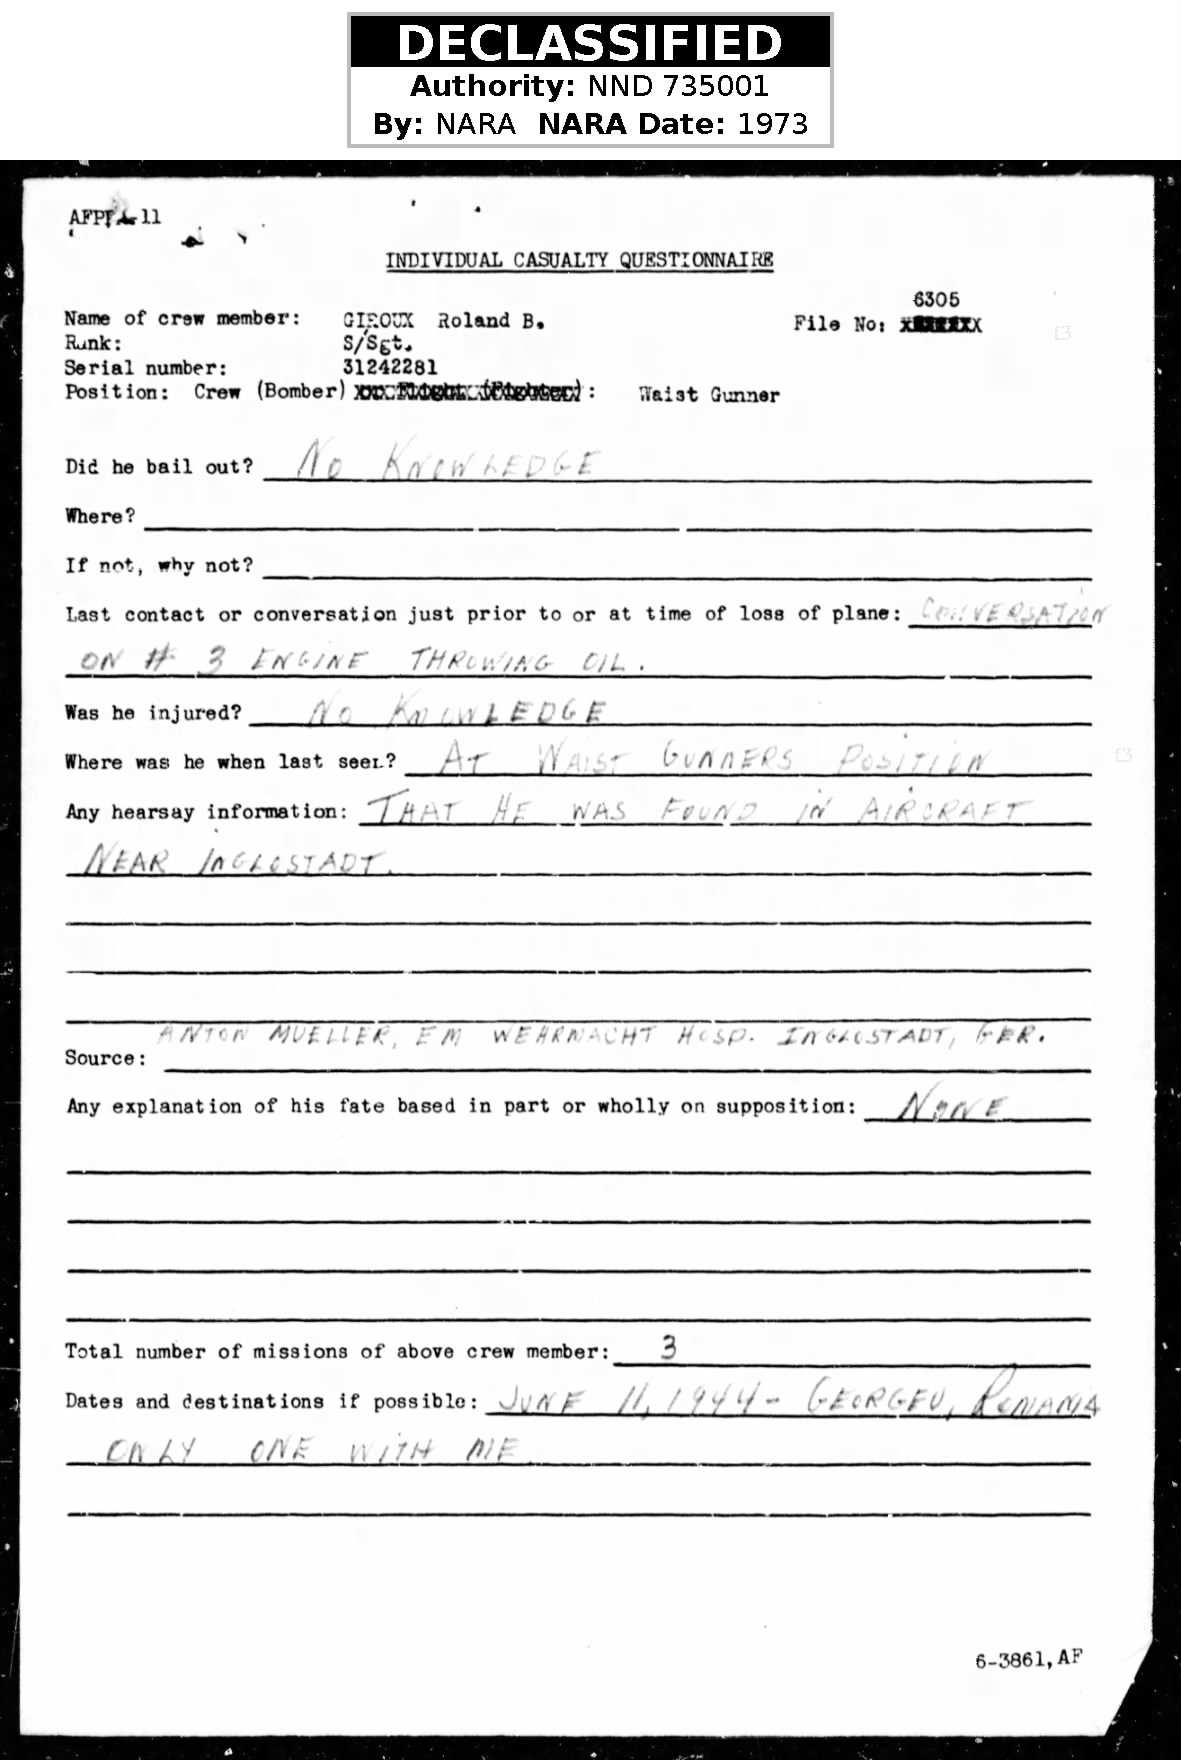 DECLASSIFIED
Authority: NND 735001
By: NARA NARA Date: 1973
11
INDIVIDUAL CASUALTY QUESTIONNAIRE
6305
Name of crew member: GIROUX Roland B. File No:
Rank: S/Sgt.
Serial number: 31242281
Position: Crew (Bomber) : Waist Gunner
Did he bail out? NO KNOWLEDGE
Where?
If not, why not?
Last contact or conversation just prior to or at time of loss of plane: CONVERSATION
ON # 3 ENGINE THROWING OIL.
Was he injured? NO KNOWLEDGE
Where was he when last seen? AT WAIST GUNNERS POSITION
Any hearsay information: THAT HE WAS FOUND IN AIRCRAFT
NEAR INGLOSTADT.
ANTON MUELLER, EM WEHRMACHT HOSP. INGLOSTADT, GER.
Source:
Any explanation of his fate based in part or wholly on supposition: NONE
Total number of missions of above crew member: 3
Dates and destinations if possible: JUNE 11, 1944 - GEORGEU, ROMANIA
ONLY ONE WITH ME
6-3861, AF